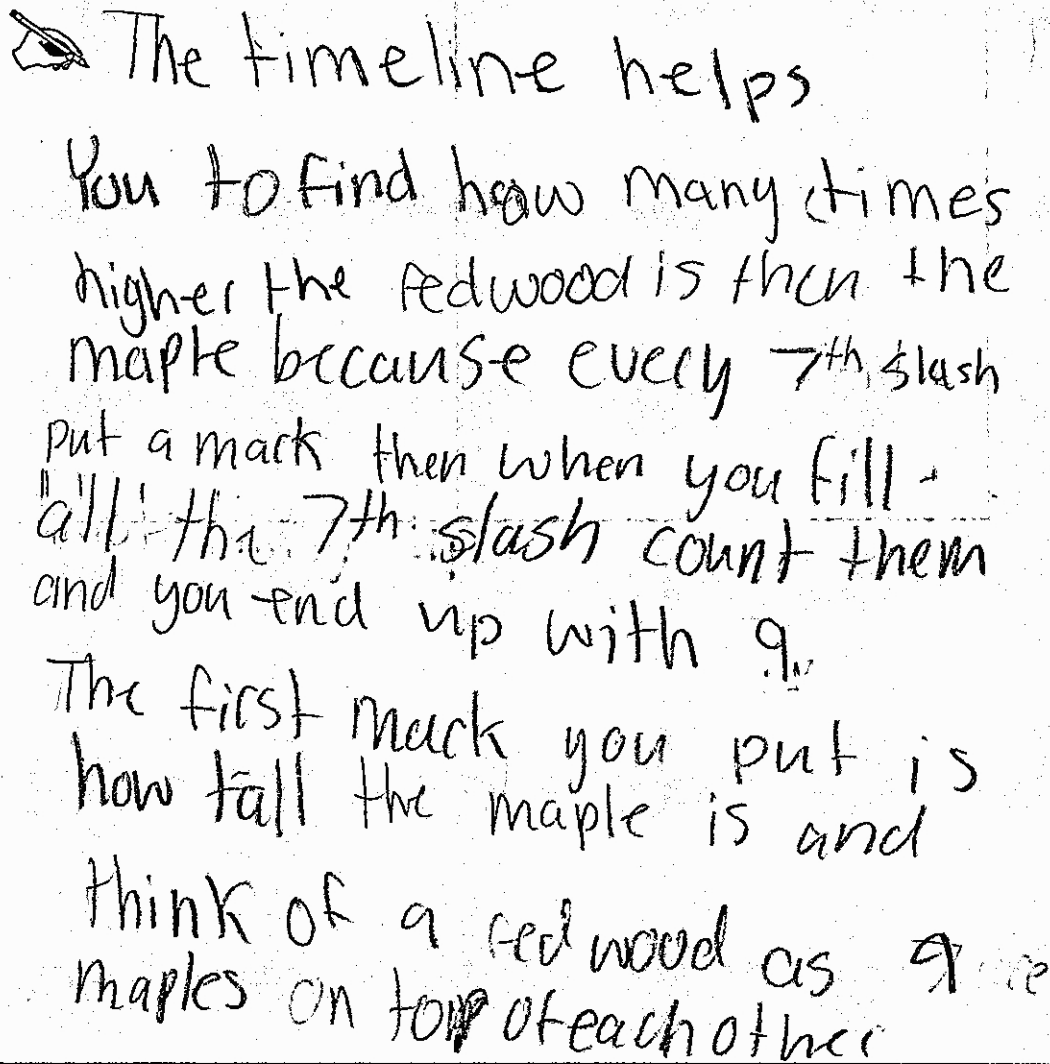 The timeline helps
You to find how many times
higher the redwood is then the
maple because every 7th slash
put a mark then when you fill
all the 7th slash count them
and you end up with 9.
The first mark you put is
how tall the maple is and
think of a redwood as 9
maples on top of each other